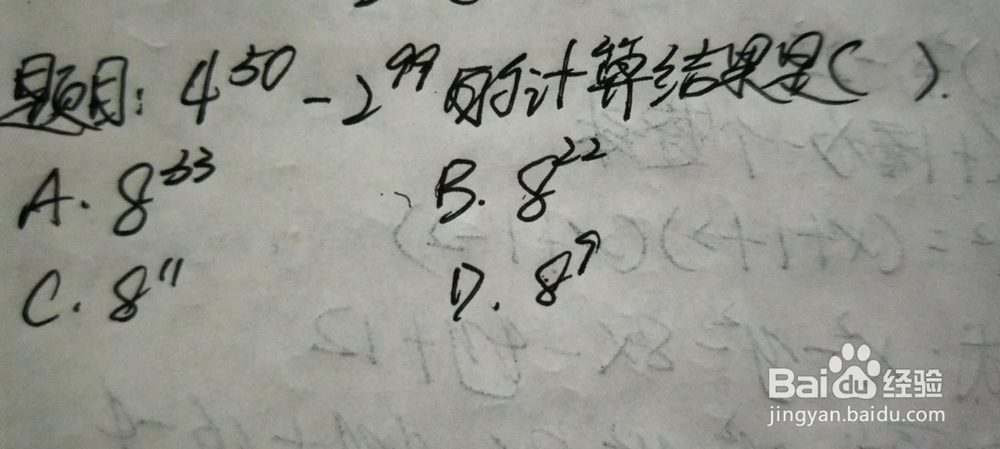 题目: 4⁵⁰ - 2⁹⁹ 的计算结果是( ).
A. 8³³ B. 8²²
C. 8¹¹ D. 8⁹
Baidu 经验
jingyan.baidu.com